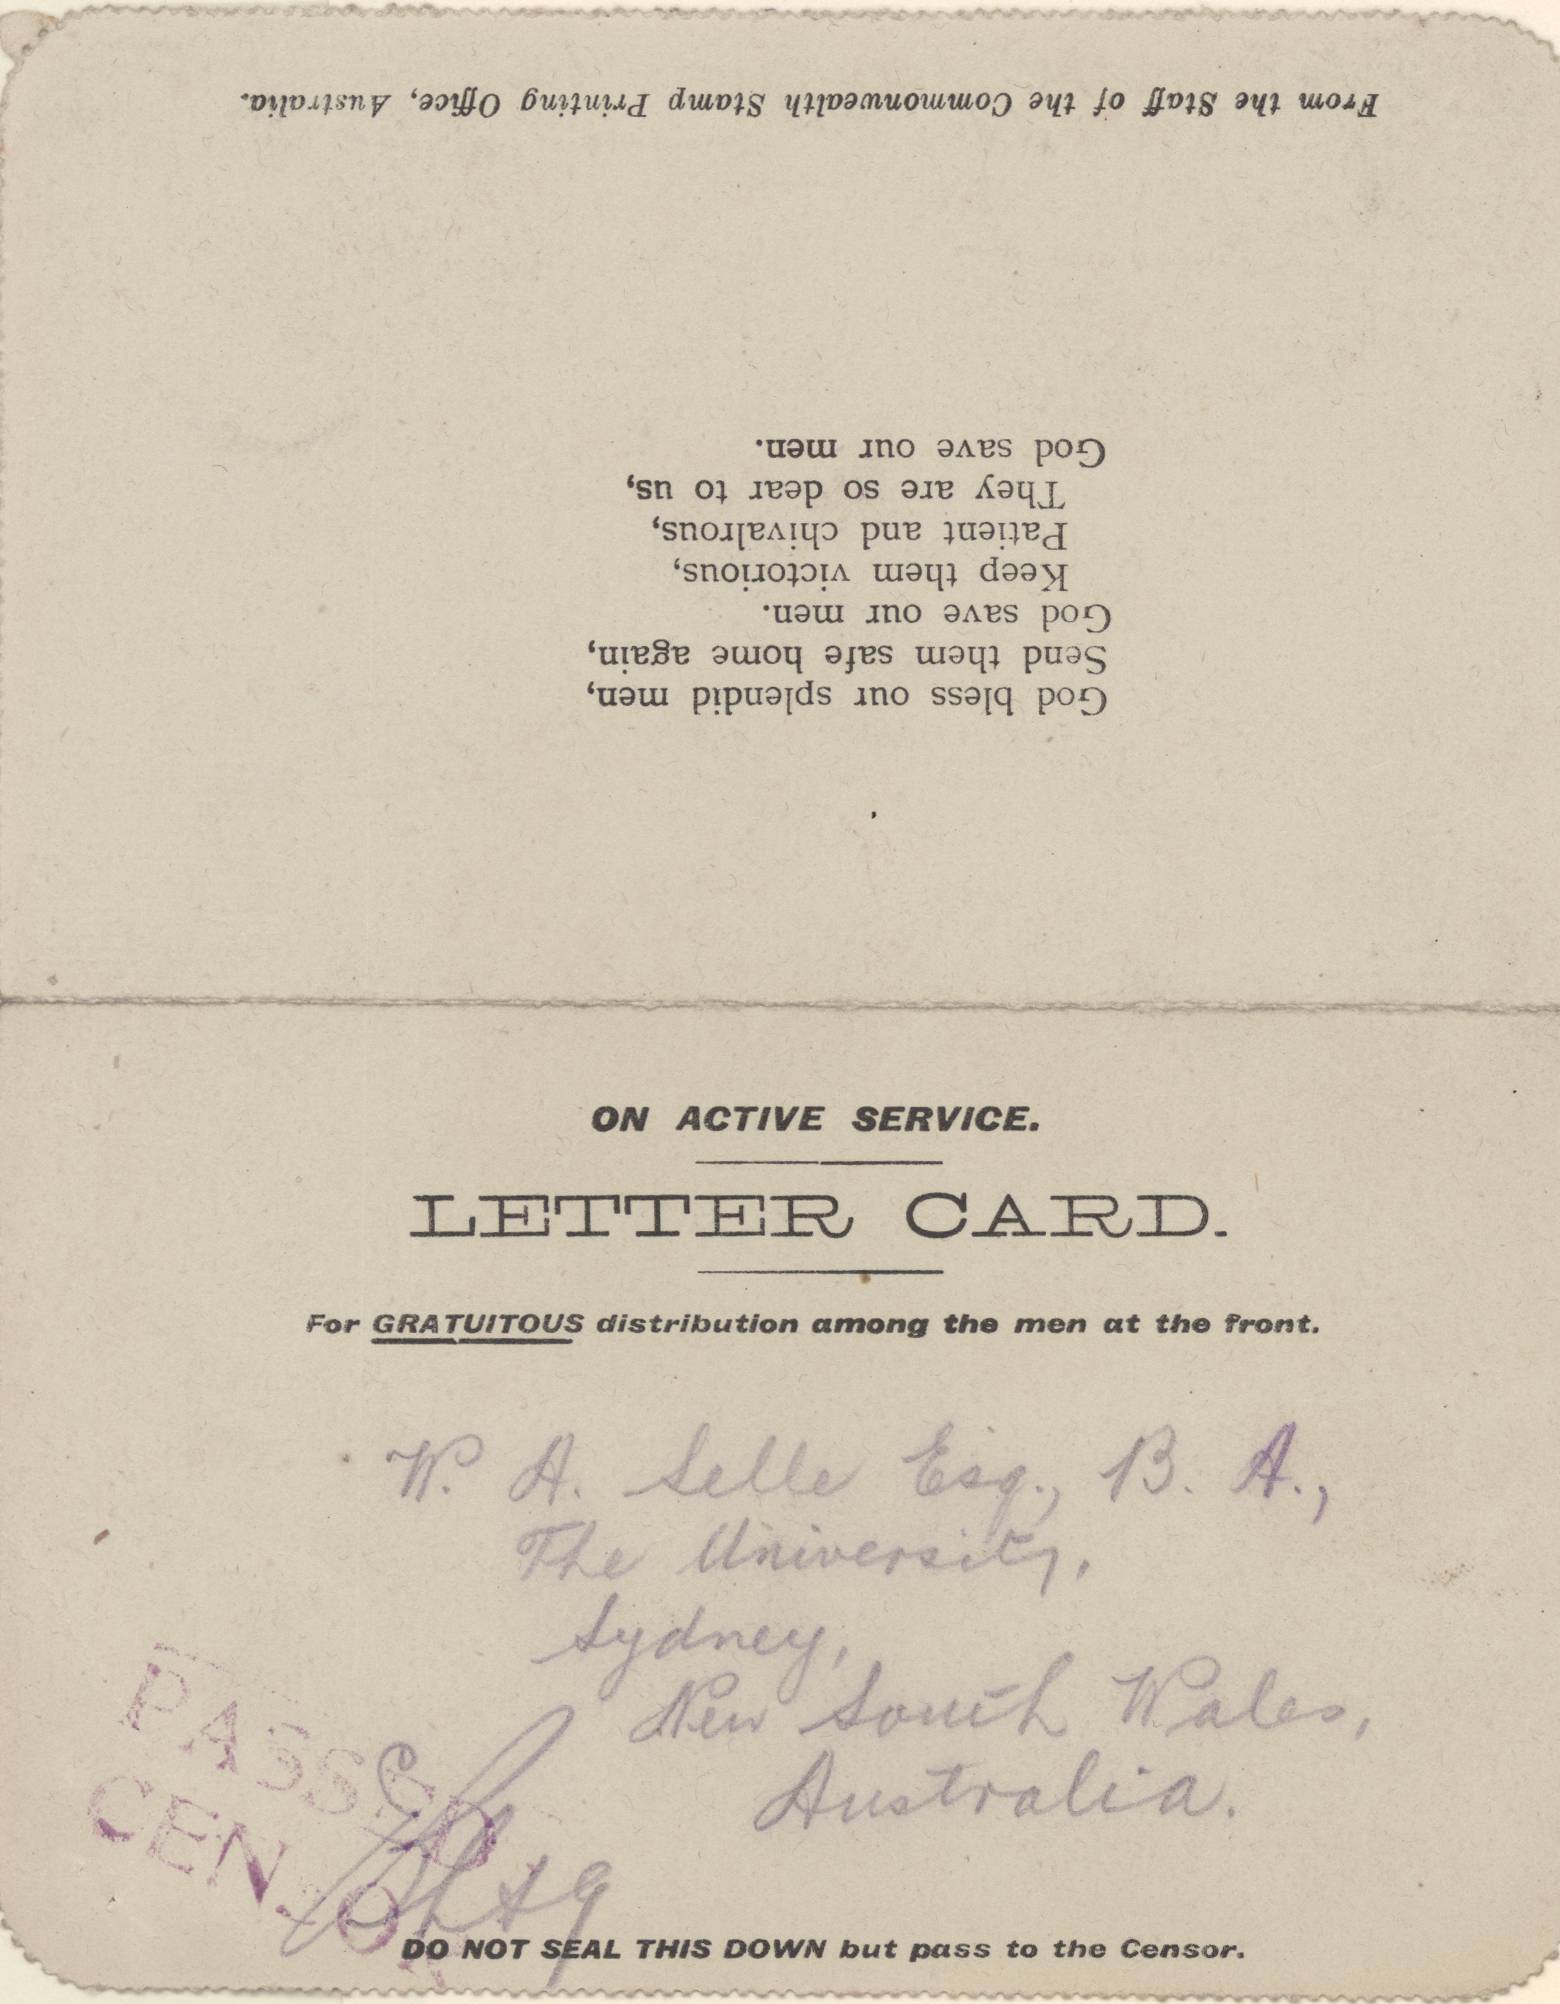 From the Staff of the Commonwealth Stamp Printing Office, Australia.
God bless our splendid men,
Send them safe home again,
God save our men.
Keep them victorious,
Patient and chivalrous,
They are so dear to us,
God save our men.
ON ACTIVE SERVICE.
LETTER CARD.
For GRATUITOUS distribution among the men at the front.
W. A. Selle Esq., B. A.,
The University,
Sydney,
New South Wales,
Australia.
PASSED
CENSOR
DO NOT SEAL THIS DOWN but pass to the Censor.